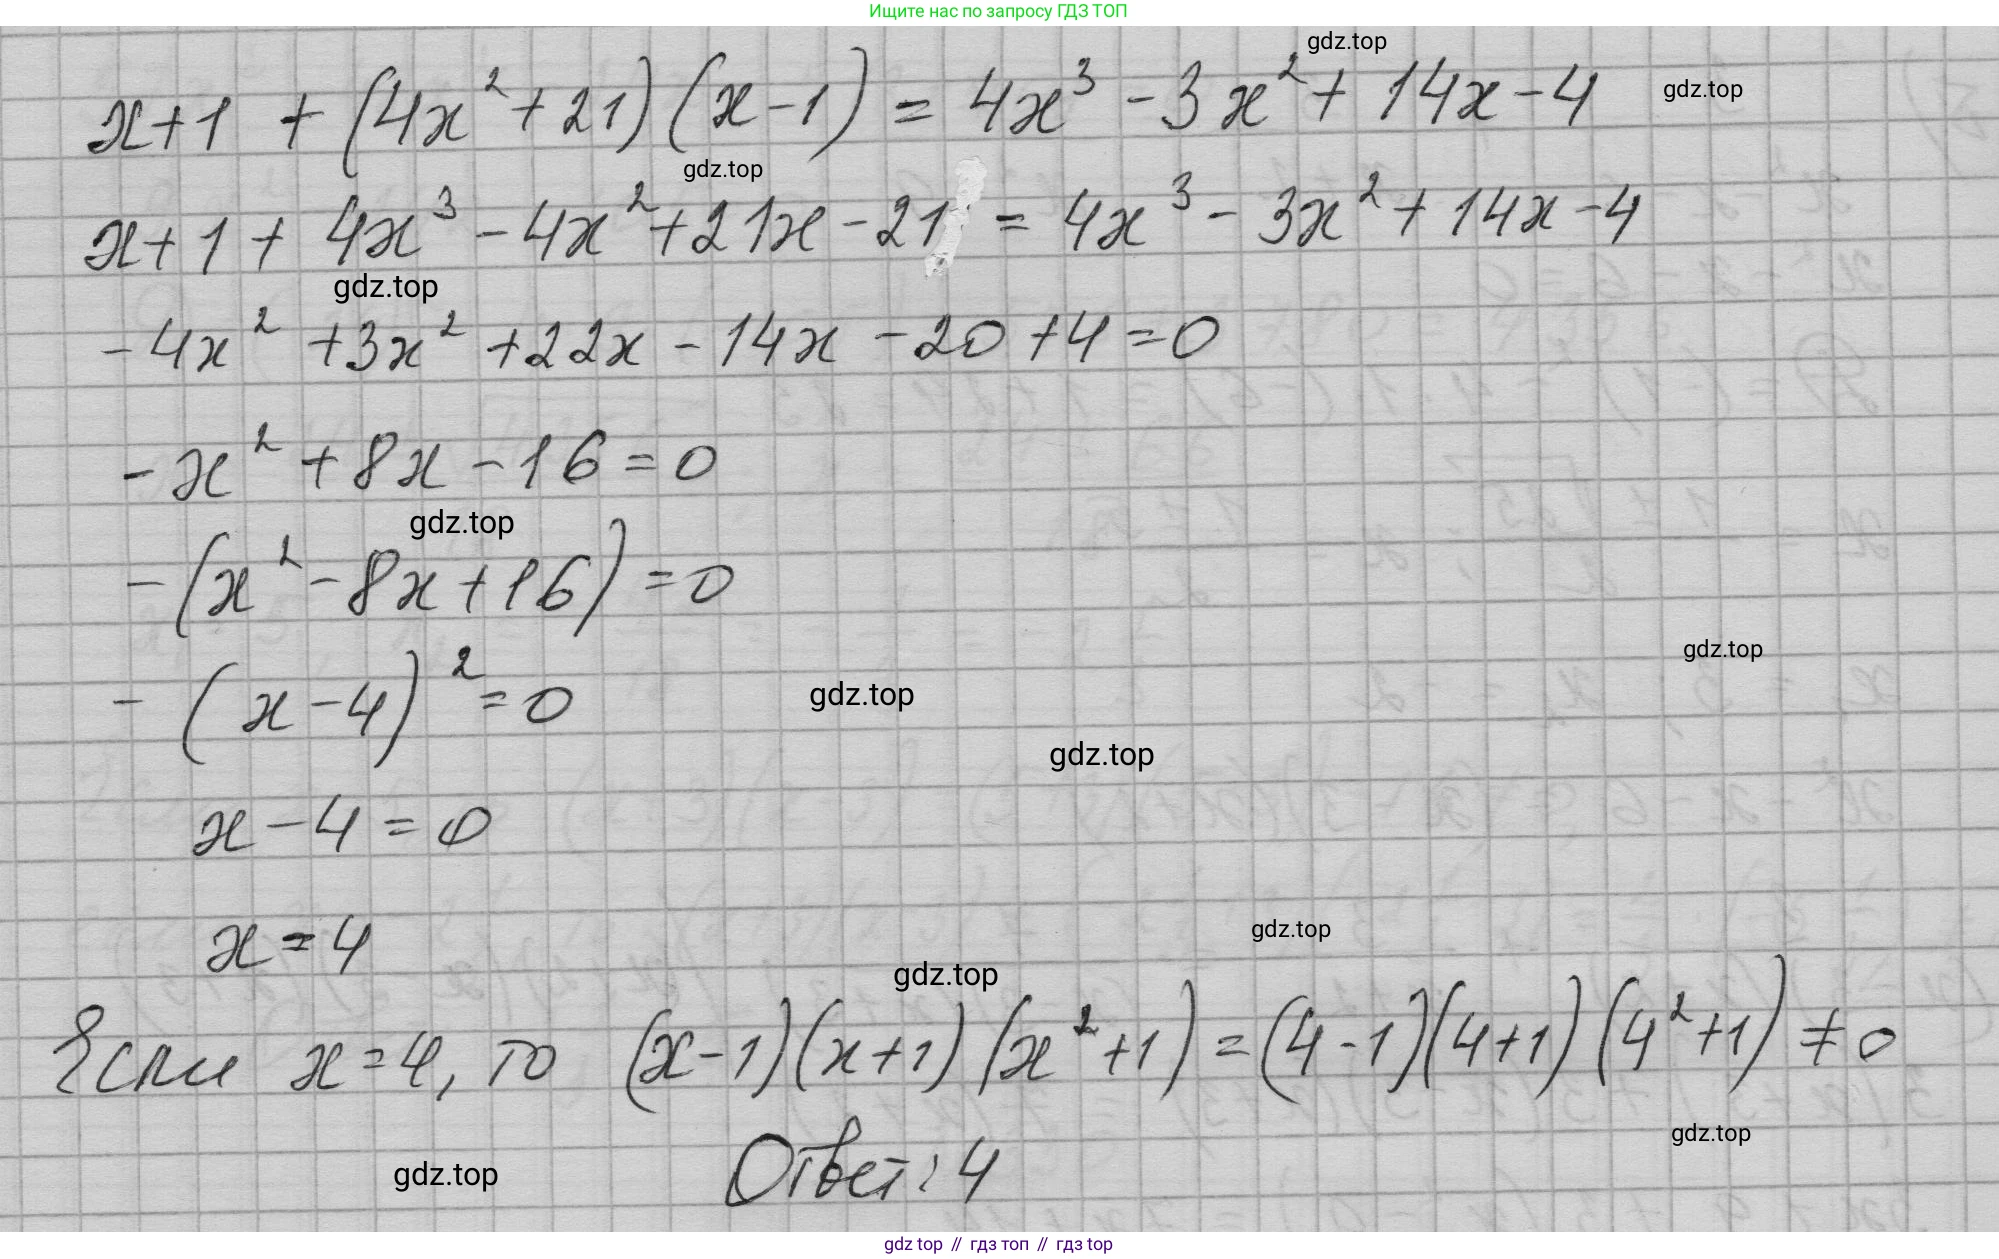 Ищите нас по запросу ГДЗ ТОП
gdz.top
x+1 + (4x²+21)(x-1) = 4x³ - 3x² + 14x - 4 gdz.top
gdz.top
x+1 + 4x³ - 4x² + 21x - 21 = 4x³ - 3x² + 14x - 4
gdz.top
-4x² +3x² +22x - 14x - 20 + 4 = 0
-x² + 8x - 16 = 0
gdz.top
-(x² - 8x + 16) = 0
gdz.top
-(x-4)² = 0 gdz.top
gdz.top
x - 4 = 0
x = 4 gdz.top
gdz.top
Если x=4, то (x-1)(x+1)(x²+1) = (4-1)(4+1)(4²+1) ≠ 0
gdz.top
gdz.top Ответ: 4
gdz top // гдз топ // гдз top